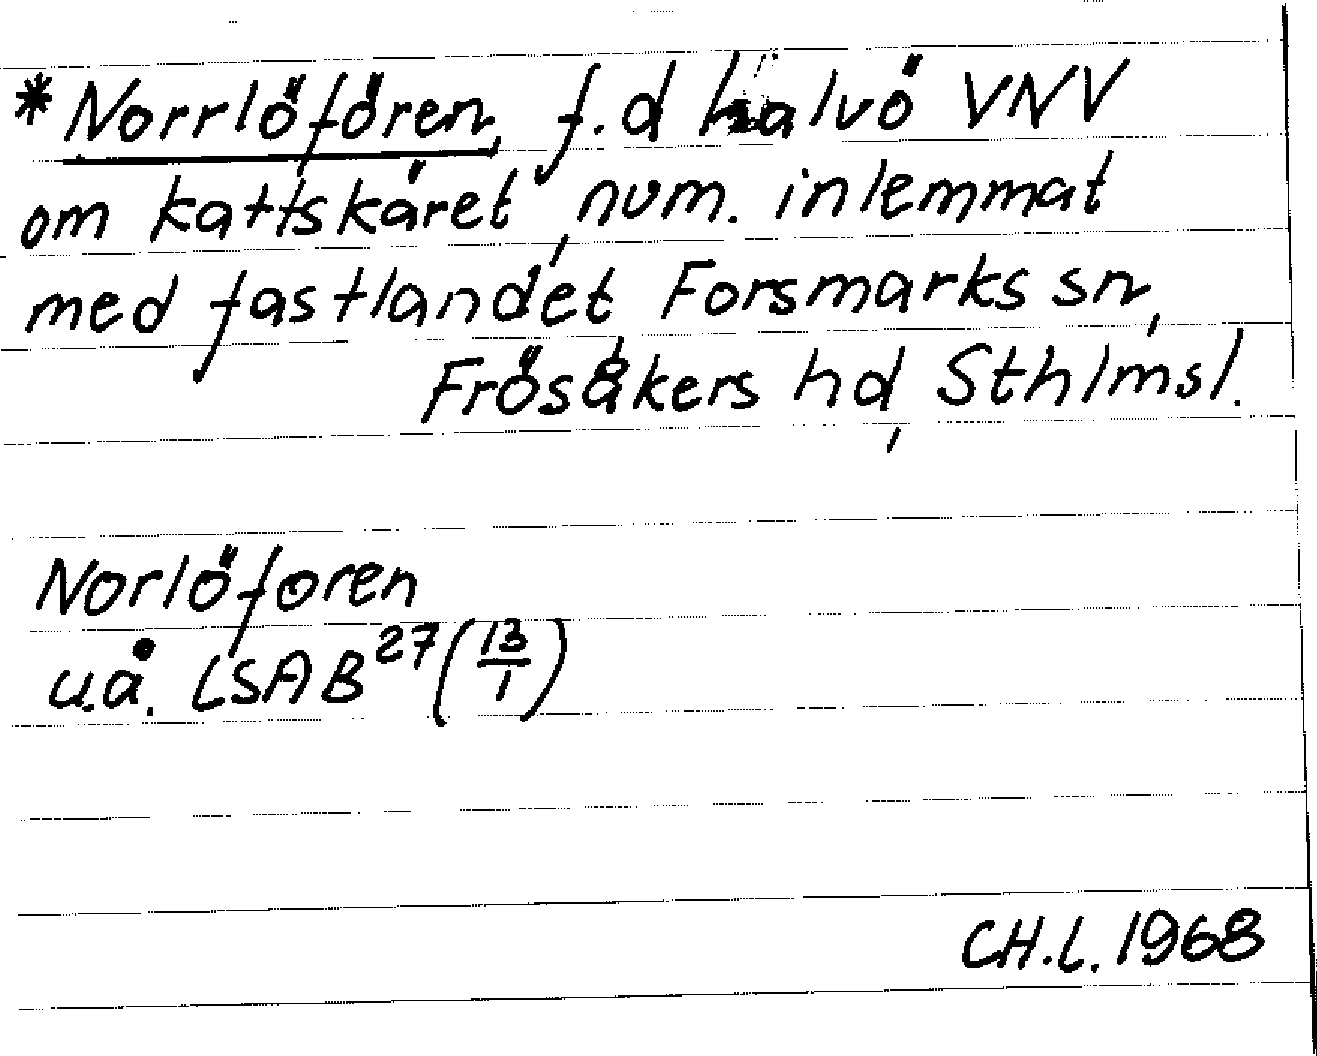 *Norrlöfören, f.d halvö VNV
om kattskäret, num. inlemmat
med fastlandet Forsmarks sn,
Frösåkers hd, Sthlmsl.
Norlöforen
u.å. LSA B²⁷ (13/1)
CH.L. 1968